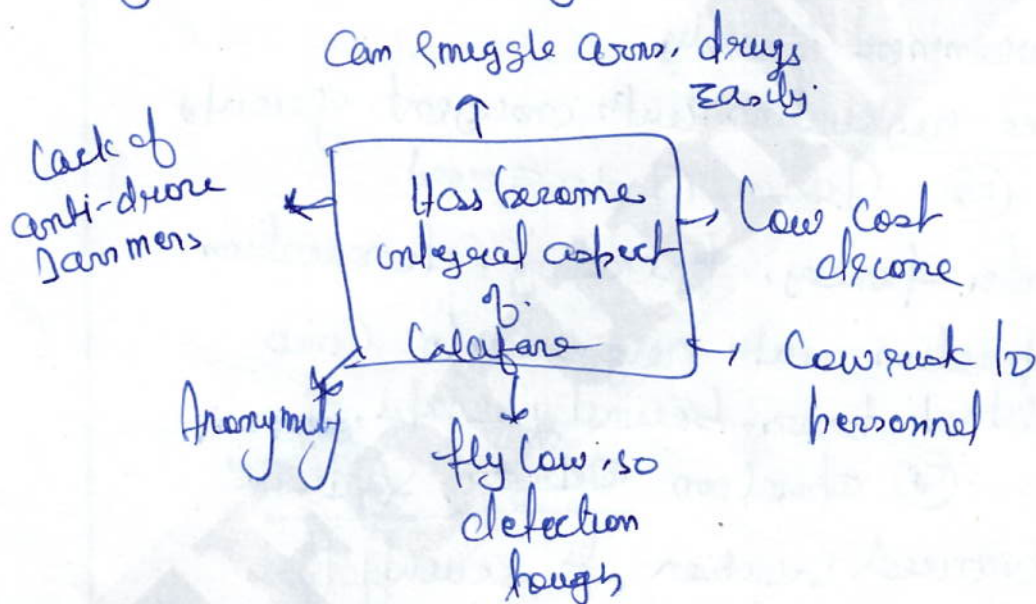 Can smuggle arms, drugs
easily.
Lack of
anti-drone
Jammers
Has become
integral aspect
of
Low cost
drone
Low risk to
personnel
Anonymity
fly low, so
detection
tough